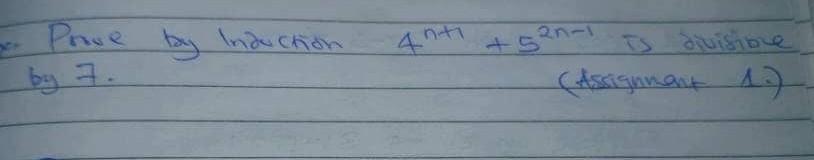 Prove by Induction 4^{n+1} + 5^{2n-1} is divisible
by 7.
(Assignment 1.)